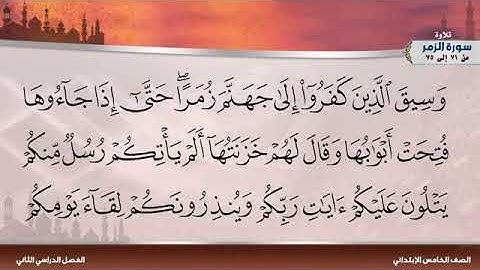 تلاوة
سورة الزمر
من ٧١ إلى ٧٥
وَسِيقَ ٱلَّذِينَ كَفَرُوٓاْ إِلَىٰ جَهَنَّمَ زُمَرًاۖ حَتَّىٰٓ إِذَا جَآءُوهَا
فُتِحَتۡ أَبۡوَٰبُهَا وَقَالَ لَهُمۡ خَزَنَتُهَآ أَلَمۡ يَأۡتِكُمۡ رُسُلٞ مِّنكُمۡ
يَتۡلُونَ عَلَيۡكُمۡ ءَايَٰتِ رَبِّكُمۡ وَيُنذِرُونَكُمۡ لِقَآءَ يَوۡمِكُمۡ
الصف الخامس الإبتدائي
الفصل الدراسي الثاني